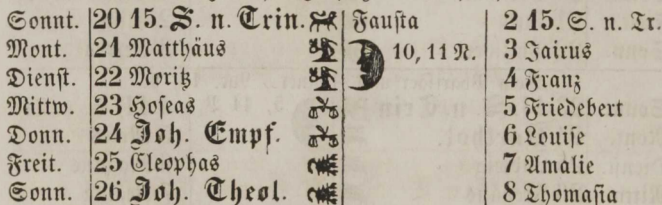 Sonnt. 20 15. S. n. Trin. Fauſta 2 15. S. n. Tr.
Mont. 21 Matthäus 10, 11 N. 3 Jairus
Dienſt. 22 Moritz 4 Franz
Mittw. 23 Hoſeas 5 Friedebert
Donn. 24 Joh. Empf. 6 Louiſe
Freit. 25 Cleophas 7 Amalie
Sonn. 26 Joh. Theol. 8 Thomaſia